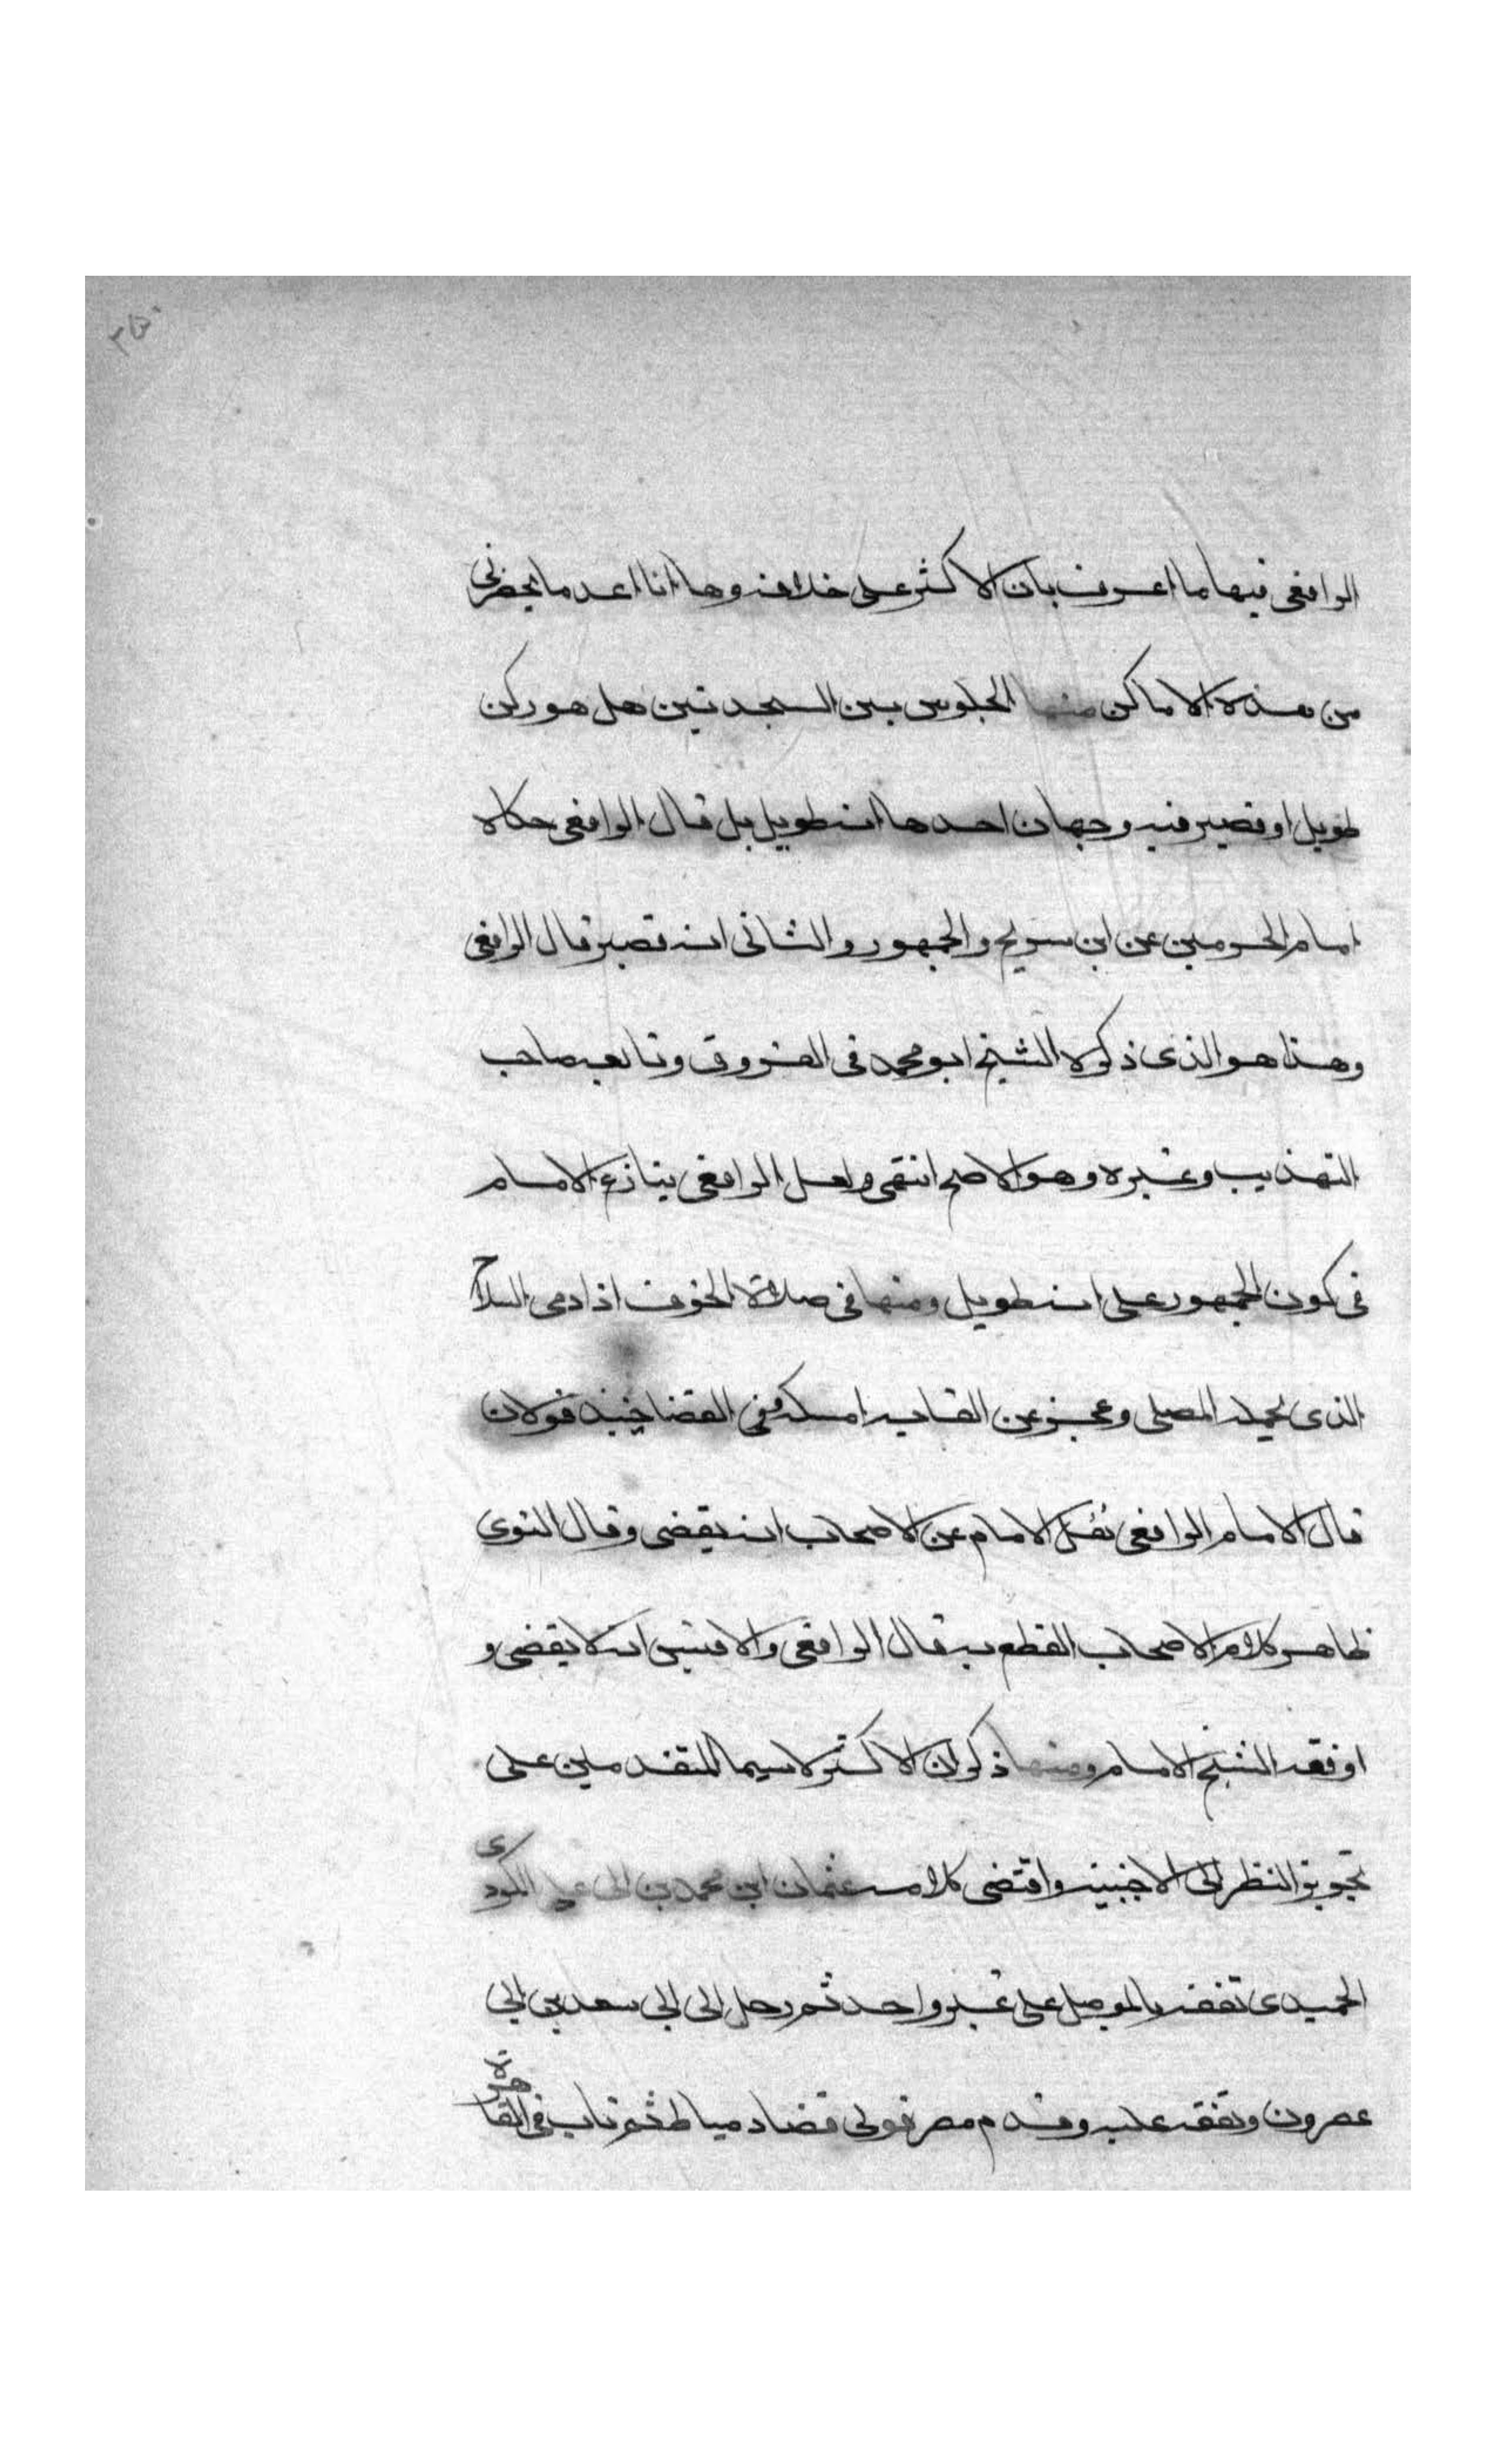 الرافعى فيها ما اعرف بان الاكثر على خلافه وها انا اعد ما يحضرنى
من هذه الاماكن منها الجلوس بين السجدتين هل هو ركن
طويل او قصير فيه وجهان احدها انه طويل بل قال الرافعى حكاه
امام الحرمين عن ابن سريج والجمهور والثانى انه قصير قال الرافعى
وهذا هو الذى ذكره الشيخ ابو محمد فى الفروق وتابعه صاحب
التهذيب وغيره وهو الاصح انتهى ولعل الرافعى ينازع الامام
فى كون الجمهور على انه طويل ومنها فى صلاة الخوف اذا دمى السلاح
الذى يحمله المصلى وعجز عن القايه امسكه وفى القضا حينئذ قولان
قال الامام الرافعى نقل الامام عن الاصحاب انه يقضى وقال النووى
ظاهر كلام الاصحاب القطع به قال الرافعى والاقيس انه لا يقضى و
اوفقه الشيخ الامام ومنها ذكر ان الاكثر لاسيما المتقدمين على
تجويز النظر الى الاجنبيه واقتضى كلامه عثمان ابن محمد بن ابى على الكردى
الحميدى تفقه بالموصل على غير واحد ثم رحل الى ابى سعد بن ابى
عصرون وتفقه عليه وقدم مصر فولى قضا دمياط ثم ناب فى القاهرة